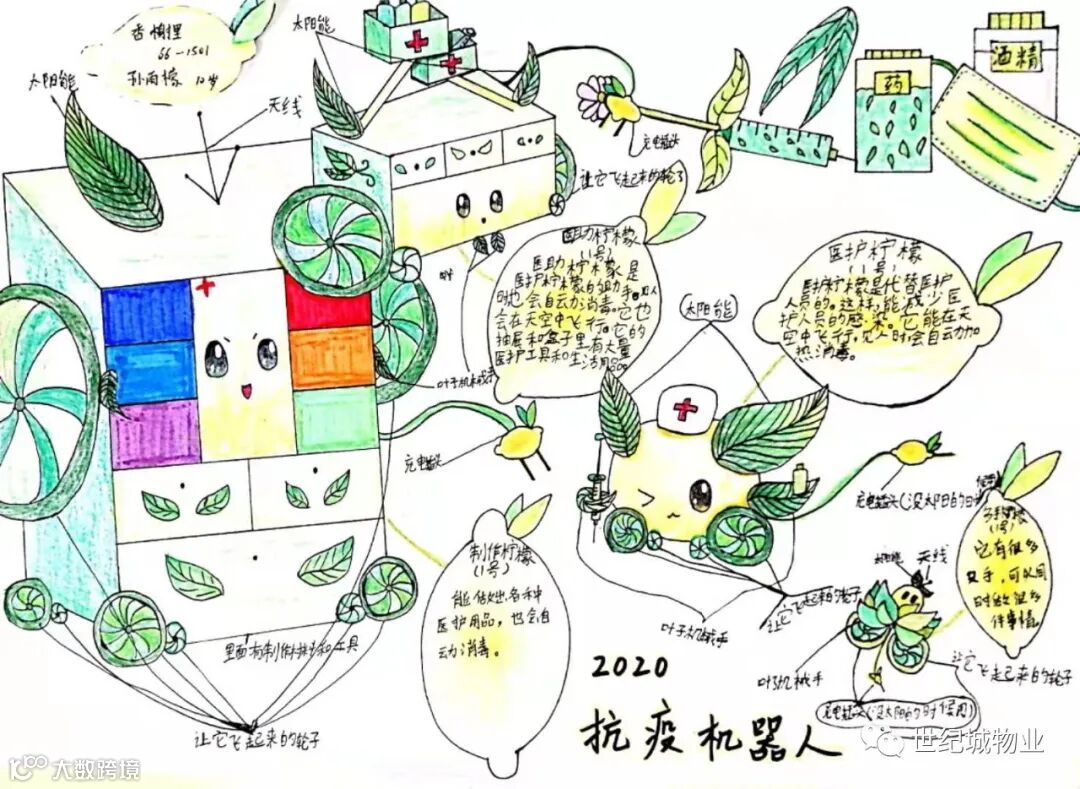 香榭里
66-1501
孙雨檬 10岁
太阳能
天线
太阳能
充电插头
让它飞起来的轮子
药
酒精
医助柠檬
(1号)
医助柠檬是
医护柠檬的助手
时也会自动消毒。它也
会在天空中飞行。它的
抽屉和盒子里有大量
医护工具和生活用品。
医护柠檬
(1号)
医护柠檬是代替医护
人员的。这样,能减少医
护人员的感染。它能在天
空中飞行。见人时会自动加
热消毒。
(太阳能)
叶子机械手
充电插头
充电插头(没太阳的日
制作柠檬
(1号)
能做出各种
医护用品,也会自
动消毒。
里面有制作材料和工具
让它飞起来的轮子
叶子机械手
让它飞起来的轮子
(1号)
它有很多
双手,可以同
时做很多
件事情。
太阳能
天线
叶子机械手
让它飞起来的轮子
充电插头(没太阳的时候用)
2020
抗疫机器人
世纪城物业
大数跨境